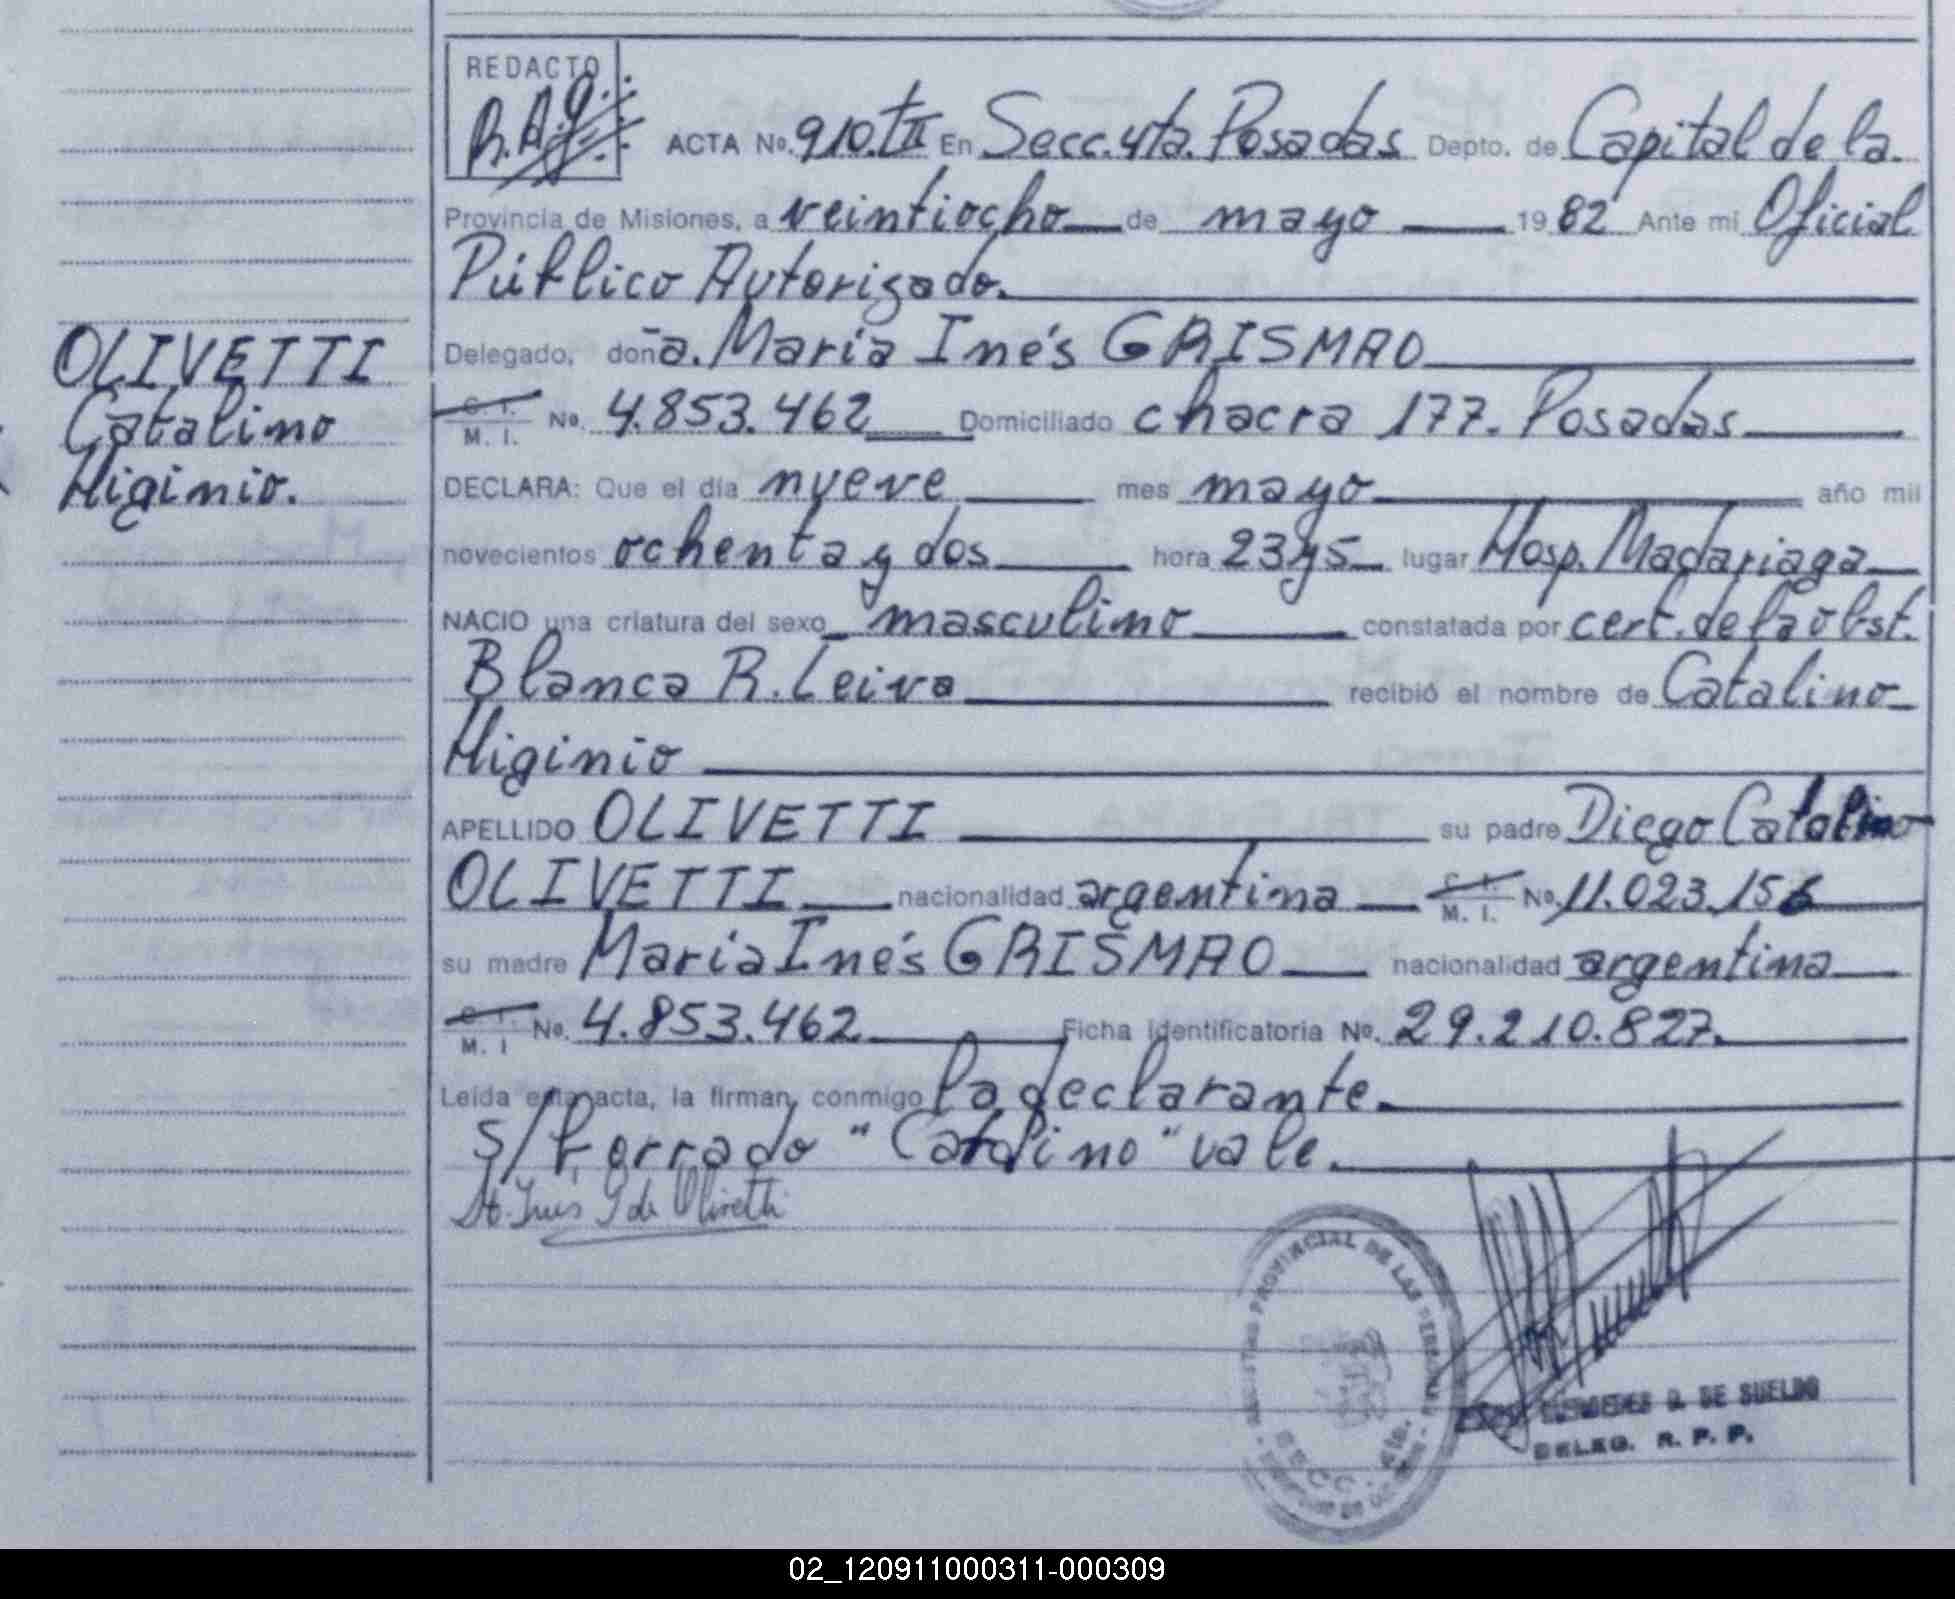 REDACTO
R.A.G.
ACTA No. 910.tII En Secc. 4ta. Posadas Depto. de Capital de la
Provincia de Misiones, a veintiocho de mayo 1982 Ante mi Oficial
Público Autorizado.
Delegado, doña. María Inés GRISMAO
C. I. M. I. No. 4.853.462 Domiciliado chacra 177. Posadas
OLIVETTI
Catalino
Higinio.
DECLARA: Que el día nueve mes mayo año mil
novecientos ochenta y dos hora 23y5 lugar Hosp. Madariaga
NACIO una criatura del sexo masculino constatada por cert. de la obst.
Blanca R. Leiva recibió el nombre de Catalino
Higinio
APELLIDO OLIVETTI su padre Diego Catalino
OLIVETTI nacionalidad argentina C. I. M. I. No. 11.023.156
su madre María Inés GRISMAO nacionalidad argentina
C. I. M. I No. 4.853.462 Ficha identificatoria No. 29.210.827.
Leida esta acta, la firman conmigo la declarante.
s/borrado "Catalino" vale.
Inés G de Olivetti
PROVINCIAL DE LAS PERSONAS
SECC. 4ta.
DE SUELDO
DELEG. R. P. P.
02_120911000311-000309